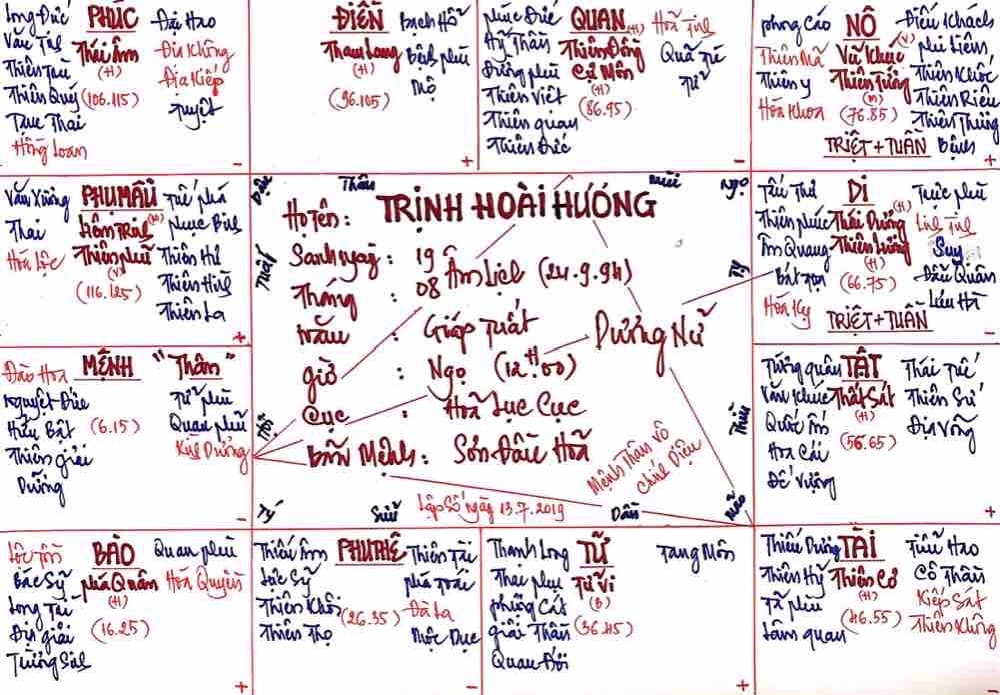 Long Đức
Văn Tinh
Thiên Tài
Thiên Quý
Trực Thai
Hồng Loan
PHÚC
Thái Âm
(H)
(106.115)
Đại Hao
Địa Không
Địa Kiếp
Tuyệt
-
ĐIỀN
Tham Lang
(H)
(96.105)
Bạch Hổ
Bệnh phù
Mộ
+
phúc Đức
Hỷ Thần
Đường phù
Thiên Việt
Thiên quan
Thiên Đức
QUAN
(H)
Thiên Đồng
Cự Môn
(H)
(86.95)
Hoả Tinh
Quả Tú
Tử
-
phong Cáo
Thiên Mã
Thiên y
Hóa Khoa
NÔ
(V)
Vũ Khúc
Thiên Tướng
(M)
(76.85)
TRIỆT + TUẦN
Điếu Khách
phi Liêm
Thiên Khốc
Thiên Riêu
Thiên Trùng
Bệnh
+
Văn Xương
Thai
Hóa Lộc
PHỤ MẪU
Liêm Trinh
Thiên phủ
(V)
(116.125)
Tuế phá
phục Binh
Thiên Hư
Thiên Hình
Thiên La
+
Tấu Thư
Thiên phúc
Ân Quang
Bát Tọa
Hóa Kỵ
DI
(H)
Thái Dương
Thiên Lương
(H)
(66.75)
TRIỆT + TUẦN
Trực phù
Linh Tinh
Suy
Đẩu Quân
Lưu Hà
-
Đào Hoa
Nguyệt Đức
Hữu Bật
Thiên giải
Dưỡng
MỆNH "Thân"
(6.15)
Tử phù
Quan phủ
Kình Dương
-
Tướng quân
Văn Khúc
Quốc Ấn
Hoa Cái
Đế Vượng
TẬT
Thất Sát
(H)
(56.65)
Thái Tuế
Thiên Sứ
Địa Võng
+
Lộc Tồn
Bác Sỹ
Long Trì
Địa giải
Tràng Sinh
BÀO
phá Quân
(H)
(16.25)
Quan phù
Hóa Quyền
+
Thiếu Âm
Lực Sỹ
Thiên Khôi
Thiên Thọ
PHU THÊ
(26.35)
Thiên Tài
phá Toái
Đà La
Mộc Dục
-
Thanh Long
Thai phụ
phượng Các
giải Thần
Quan Đới
TỬ
Tử Vi
(B)
(36.45)
Tang Môn
+
Thiếu Dương
Thiên Hỷ
Tả phù
Lâm quan
TÀI
Thiên Cơ
(H)
(46.55)
Tiểu Hao
Cô Thần
Kiếp Sát
Thiên Không
-
Thân
Mùi
Ngọ
Tỵ
Thìn
Mão
Dần
Sửu
Tý
Họ tên: TRỊNH HOÀI HƯƠNG
Sanh ngày : 19 Âm Lịch (24.9.94)
Tháng : 08
Năm : Giáp Tuất Dương Nữ
giờ : Ngọ (12H00)
Cục : Hoả Lục Cục
Bản Mệnh: Sơn Đầu Hoả
Mệnh Thân Vô
Chính Diệu
Lập Số ngày 13.7.2019